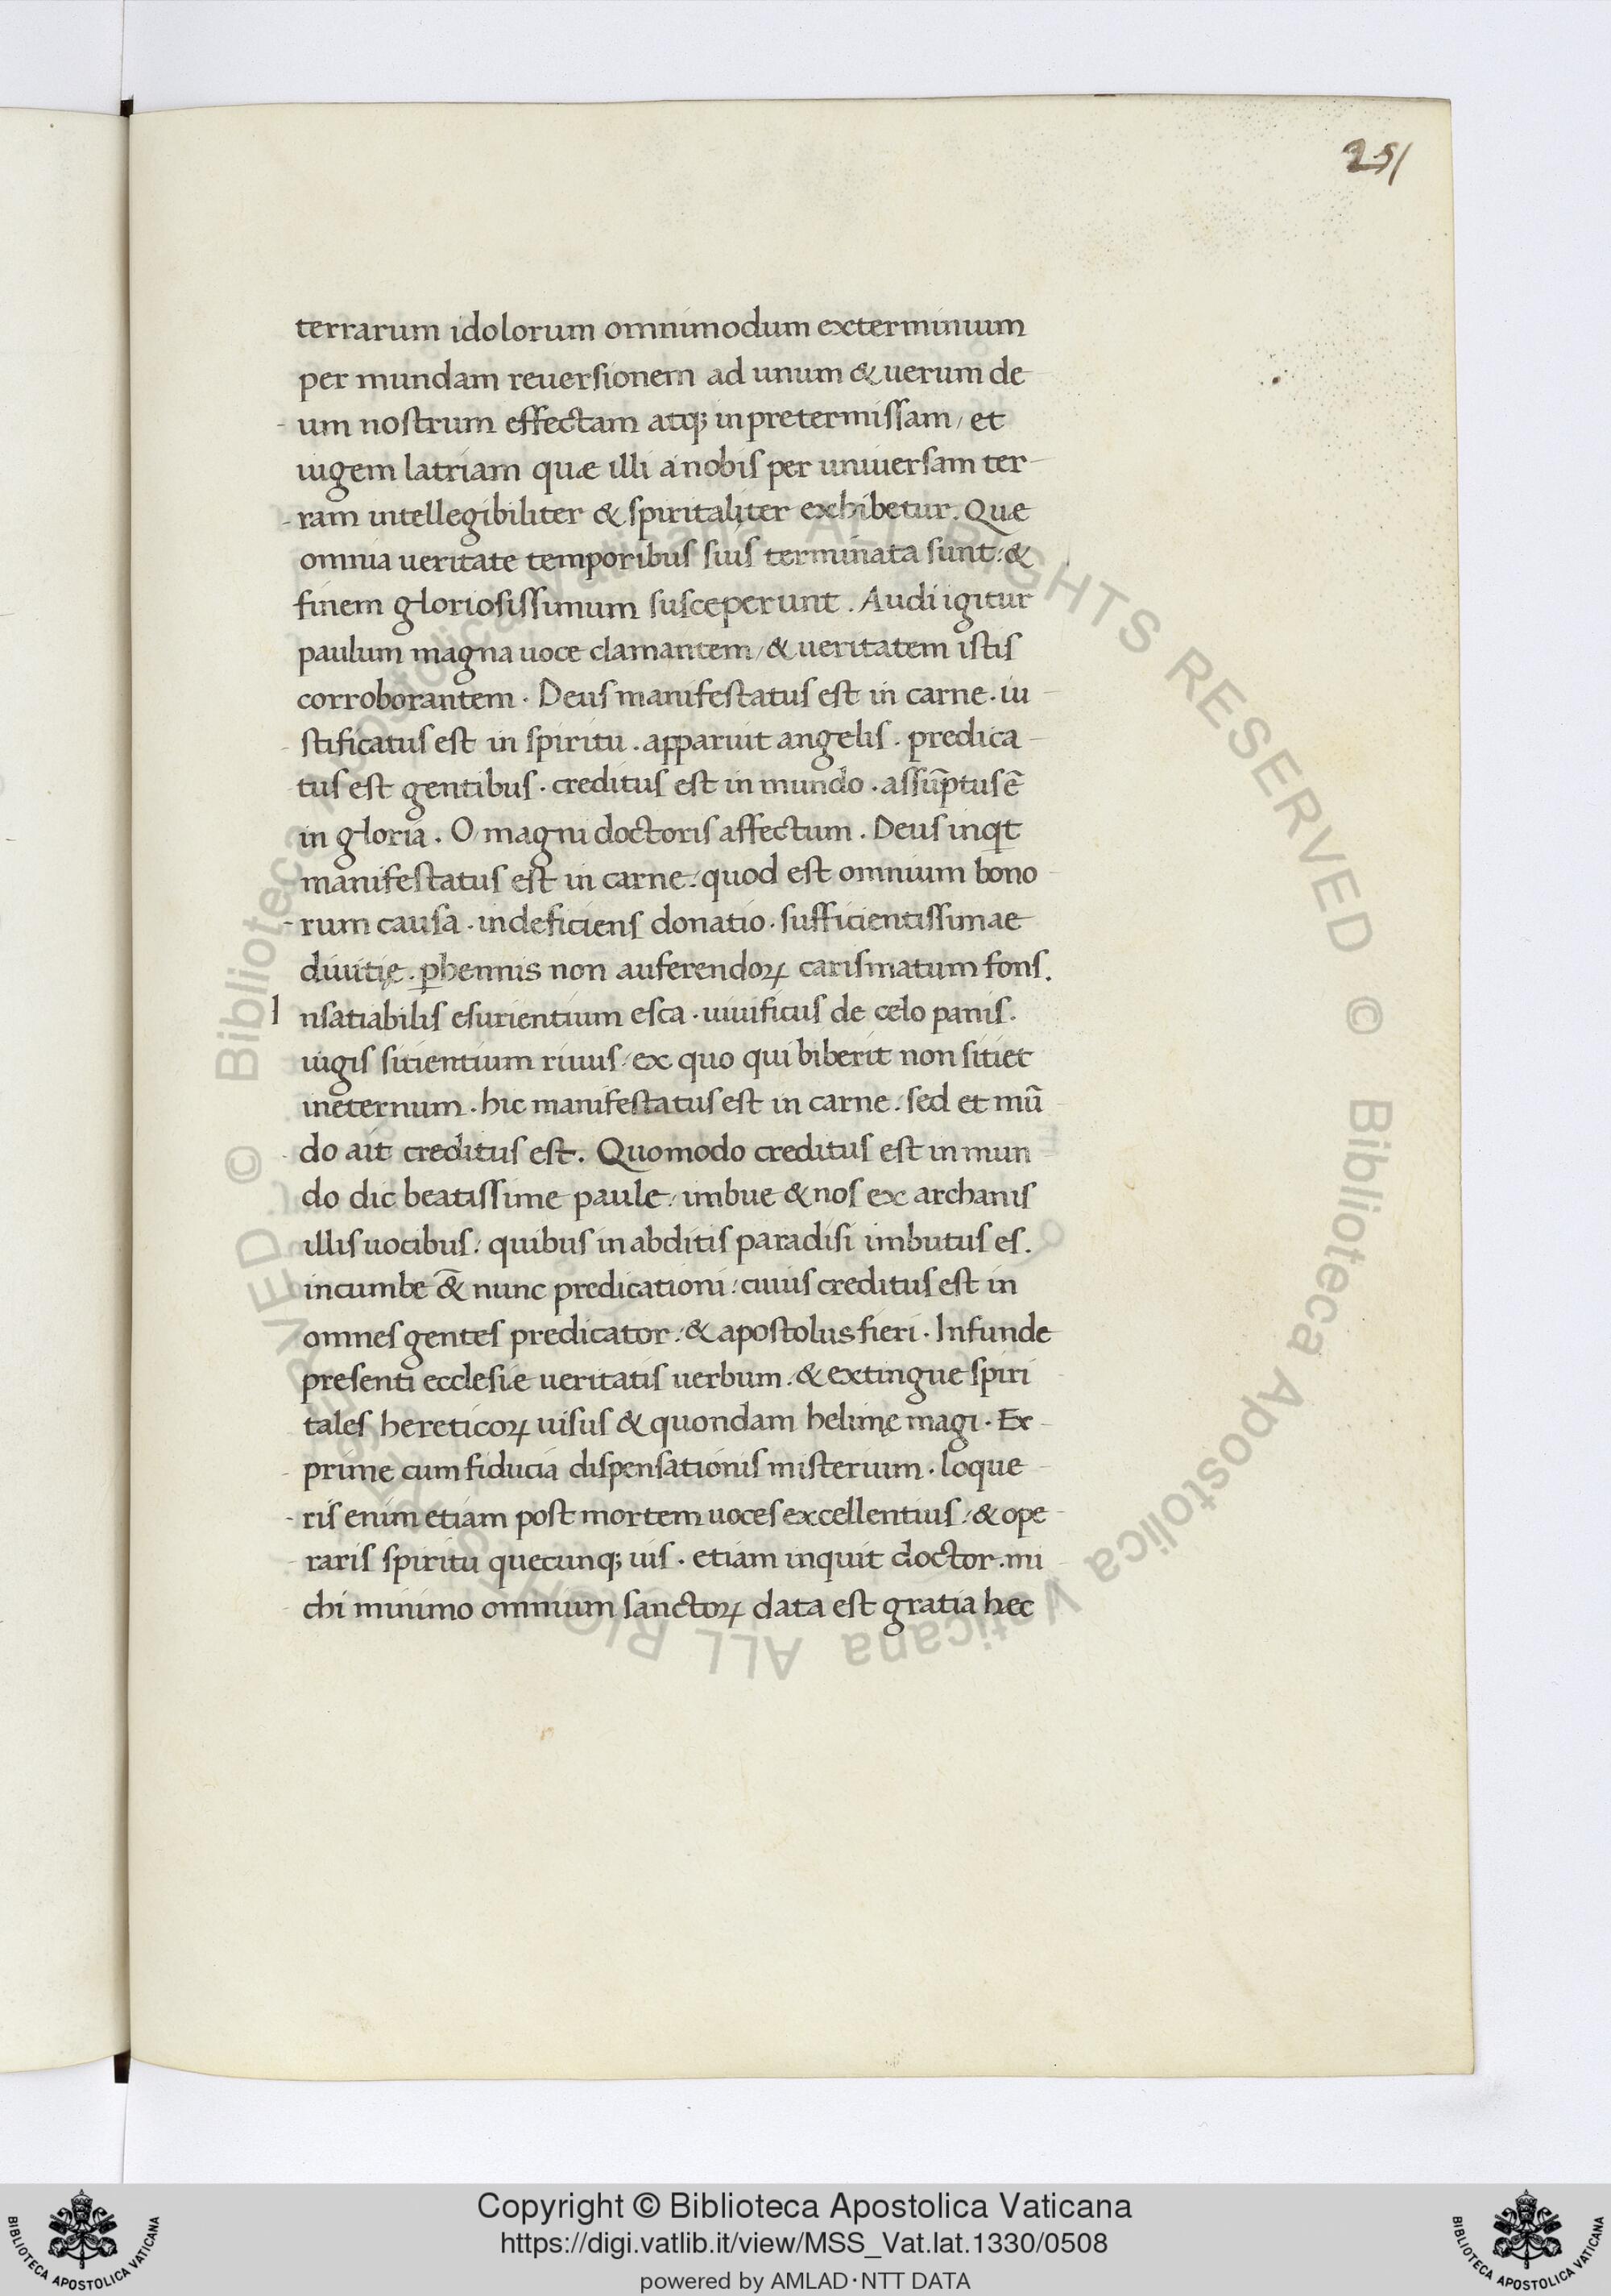 251
terrarum idolorum omnimodum exterminium
per mundam reuersionem ad unum & uerum de
-um nostrum effectam atq; inpretermissam, et
iugem latriam quæ illi a nobis per uniuersam ter-
-ram intellegibiliter & spiritaliter exhibetur. Que
omnia ueritate temporibus suis terminata sunt: &
finem gloriosissimum susceperunt. Audi igitur
paulum magna uoce clamantem, & ueritatem istis
corroborantem. Deus manifestatus est in carne. iu-
-stificatus est in spiritu. apparuit angelis. predica-
tus est gentibus. creditus est in mundo. assūptus ē
in gloria. O magni doctoris affectum. Deus inqt
manifestatus est in carne: quod est omnium bono
-rum causa. indeficiens donatio. sufficientissimae
diuitię. ꝑhennis non auferendoꝝ carismatum fons.
Insatiabilis esurientium esca. uiuificus de celo panis.
iugis sitientium riuus: ex quo qui biberit non sitiet
ineternum. hic manifestatus est in carne: sed et mū
do ait creditus est. Quomodo creditus est in mun
do dic beatissime paule: imbue & nos ex archanis
illis uocibus: quibus in abditis paradisi imbutus es.
incumbe &̄ nunc predicationi: cuius creditus est in
omnes gentes predicator: & apostolus fieri. Infunde
presenti ecclesie ueritatis uerbum: & extingue spiri
tales hereticoꝝ uisus & quondam helimę magi. Ex-
prime cum fiducia dispensationis misterium. loque-
-ris enim etiam post mortem uoces excellentius: & ope-
raris spiritu quecunq; uis. etiam inquit doctor. mi
chi minimo omnium sanctoꝝ data est gratia hec
© Biblioteca Apostolica Vaticana ALL RIGHTS RESERVED © Biblioteca Apostolica Vaticana ALL RIGHTS RESERVED
BIBLIOTECA APOSTOLICA VATICANA
Copyright © Biblioteca Apostolica Vaticana
https://digi.vatlib.it/view/MSS_Vat.lat.1330/0508
powered by AMLAD·NTT DATA
BIBLIOTECA APOSTOLICA VATICANA